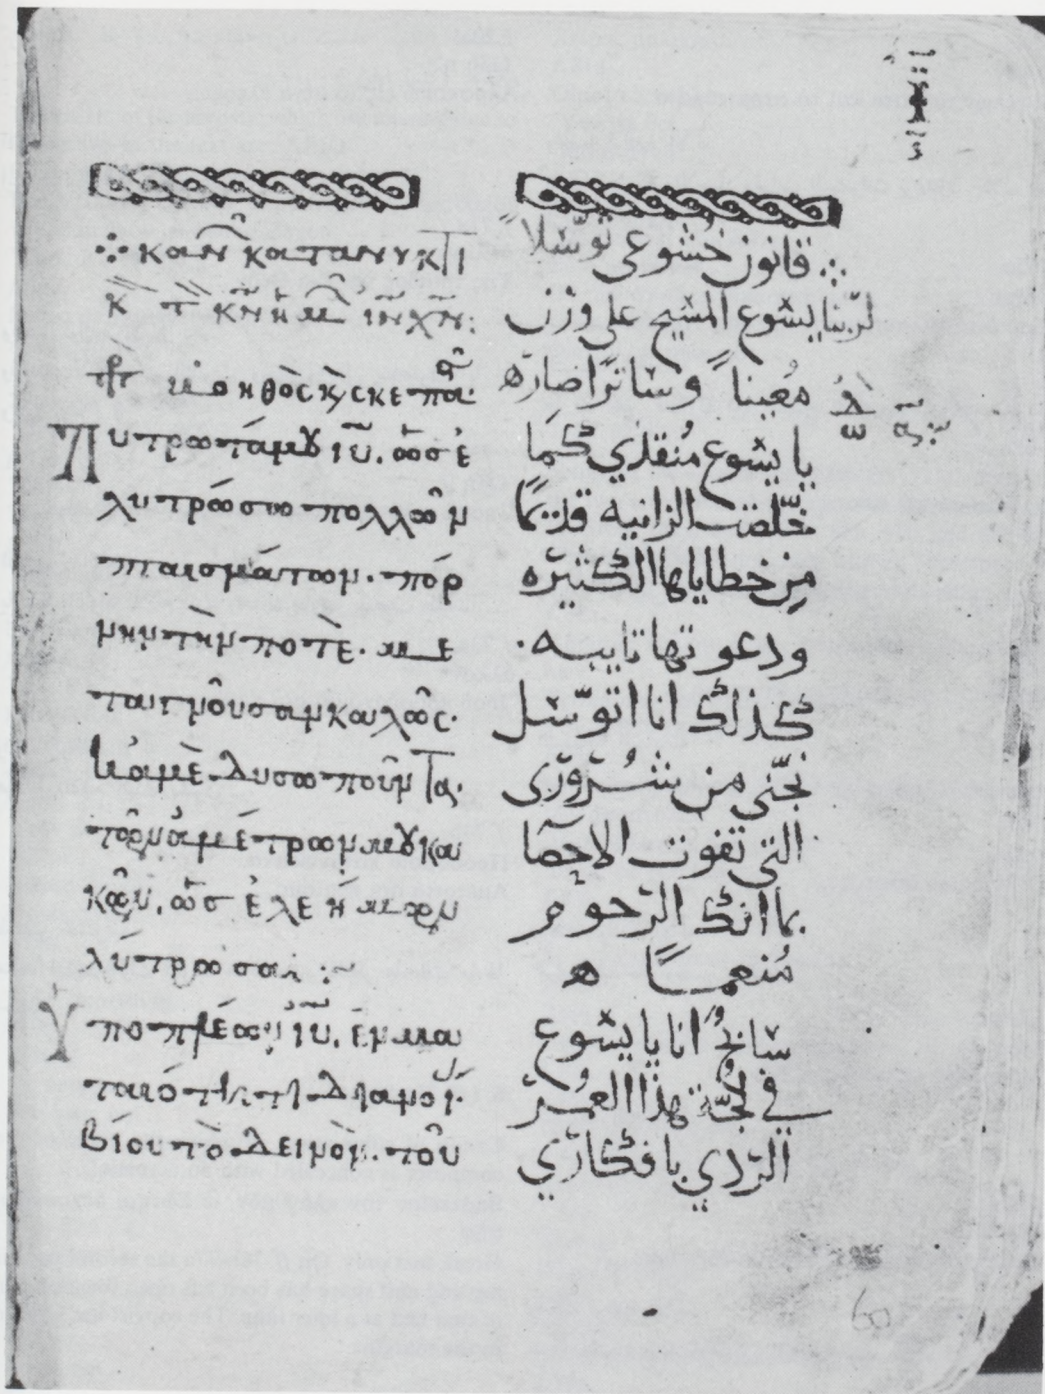 ∴ καν κατανυκτι
κ τ κν ημ ιν χν:
βοηθὸς κὺ σκεπα
Λυτρωτά μου ιυ. ὥσ ἐ
λυτρώσω πολλῶν
πταισμάτων. πόρ
νην τὴν ποτὲ. με
τανοοῦσαν καλῶς.
κἀμὲ δυσωποῦντα.
τῶν ἀμέτρων μου κα
κῶν. ὡσ ἐλεήμων
λύτρωσαι :~
Υποπλέων ιυ. ἐν μα
ταιότητι
βίου τὸ δεινὸν. τοῦ
∴ قانون خُشوعي توسّلاً
لربّنا يشوع المسيح على وزن
مُعيناً وساترًا صاره
يا يشوع مُنقذي كمَا
خلّصت الزانيه قديمًا
مِن خطاياها الكثيرَه
ودعوتها تايبه .
كذلك انا اتوسّل
نجّني من شُروري
التي تفوت الاحصَا
بما انك الرحوم
مُنعمًا ه
سابحٌ انا يا يشوع
في لجّة هذا العمُر
الردي بافكاري
60